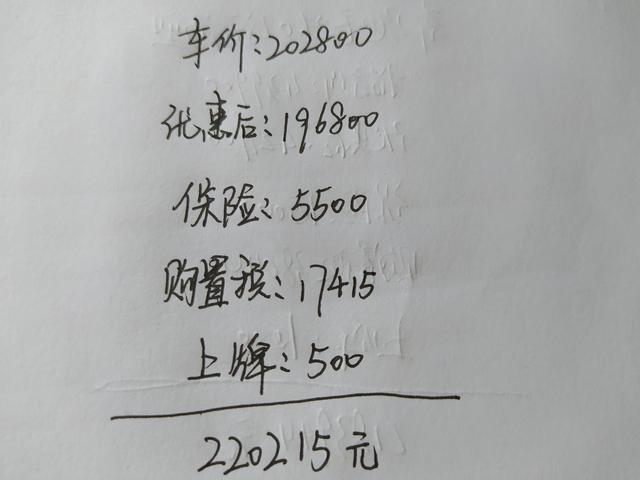 车价:202800
优惠后:196800
保险:5500
购置税:17415
上牌:500
220215元